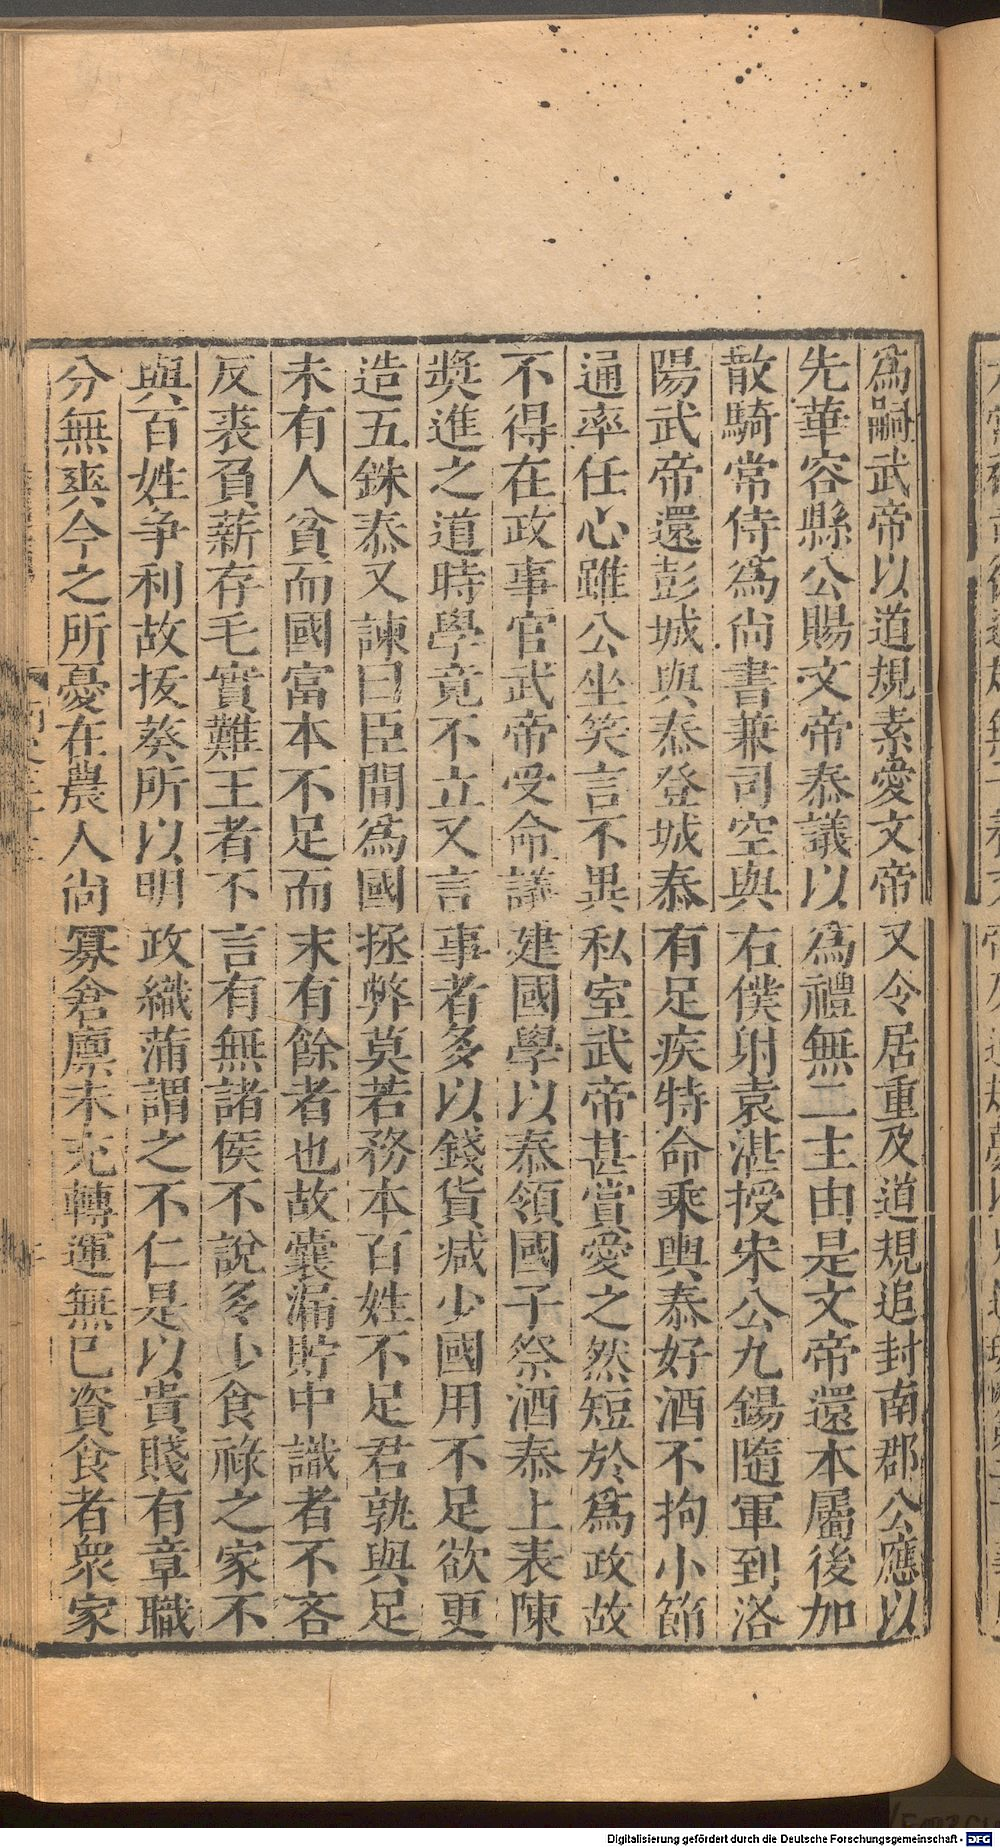 爲嗣武帝以道規素愛文帝又令居重及道規追封南郡公應以
先華容縣公賜文帝泰議以爲禮無二主由是文帝還本屬後加
散騎常侍爲尚書兼司空與右僕射袁湛授宋公九錫隨軍到洛
陽武帝還彭城與泰登城泰有足疾特命乘輿泰好酒不拘小節
通率任心雖公坐笑言不異私室武帝甚賞愛之然短於爲政故
不得在政事官武帝受命議建國學以泰領國子祭酒泰上表陳
獎進之道時學竟不立又言事者多以錢貨減少國用不足欲更
造五銖泰又諫曰臣聞爲國拯弊莫若務本百姓不足君孰與足
未有人貧而國富本不足而末有餘者也故囊漏貯中識者不吝
反裘負薪存毛實難王者不言有無諸侯不說多少食祿之家不
與百姓爭利故拔葵所以明政織蒲謂之不仁是以貴賤有章職
分無爽今之所憂在農人尚寡倉廩未充轉運無已資食者衆家
Digitalisierung gefördert durch die Deutsche Forschungsgemeinschaft - DFG